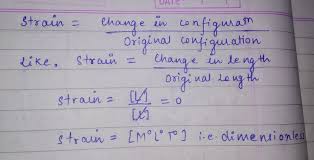 DATE: / /
Strain = Change in configuram
Original configuration
Like, Strain = Change in length
Original Length
Strain = [L] / [L] = 0
Strain = [M⁰L⁰T⁰] i.e dimensionless